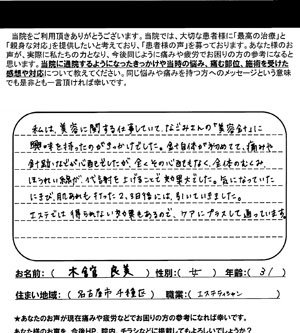 当院をご利用頂きありがとうございます。当院では、大切な患者様に「最高の治療」と
「親身な対応」を提供したいと考えており、「患者様の声」を募っております。あなた様のお
声が、実際に私たちの力となり、今後同じように痛みや疲労でお困りの方の参考になると思い
ます。当院に通院するようになったきっかけや当時の悩み、痛む部位、施術を受けた
感想や対応について教えてください。同じ悩みや痛みを持つ方へのメッセージという意味
でも是非とも一言頂ければ幸いです。
私は、美容に関する仕事していて、なごみさんの「美容針」に
興味を持ったのがきっかけでした。針自体が初めてで、痛みや
針跡などが心配でしたが、全くその心配もなく、全体のむくみ、
ほうれい線が、代謝を上げることで効果大でした。気になっていた
にきび、肌あれも行った2、3日後には、引いていきました。
エステでは得られない効果もあるので、ケアにプラスして通っています。
お名前:( 木全 良美 ) 性別:( 女 ) 年齢:( 31 )
住まい地域:( 名古屋市 千種区 ) 職業:( エステティシャン )
★あなたのお声が現在痛みや疲労などでお困りの方の参考になれば幸いです。
あなた様のお声を、今後HP、院内、チラシなどに掲載してもよろしいでしょうか?